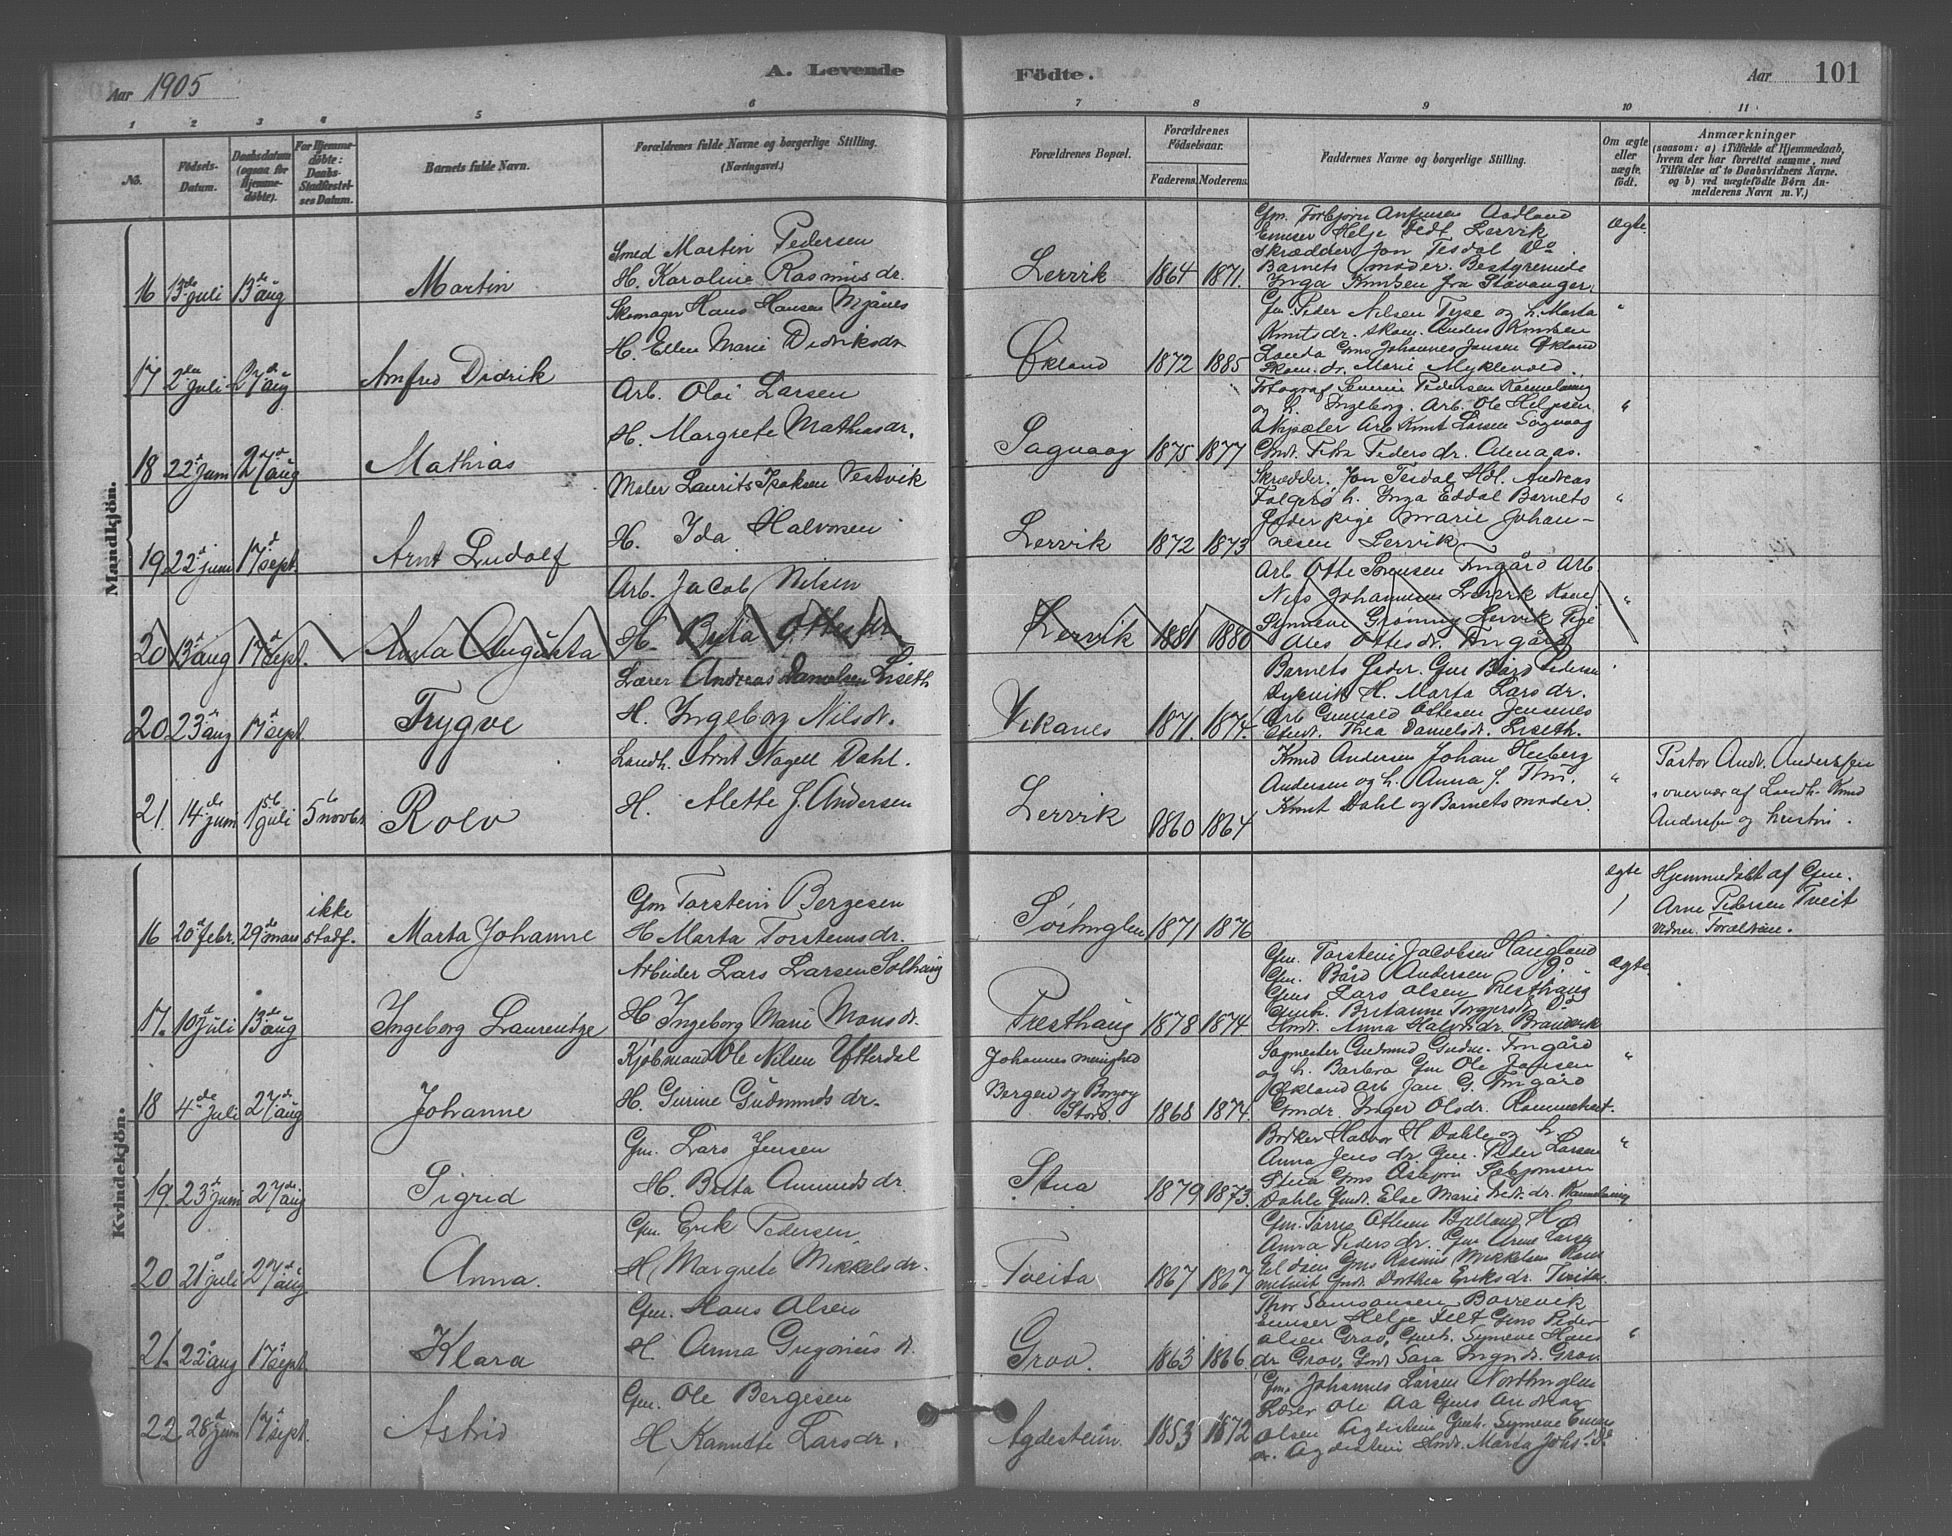 Aar 1905
A. Levende Födte.
Aar 101
1 2 3 4 5 6 7 8 9 10 11
No.
Födsels-Datum.
Daabsdatum (ogsaa for Hjemmedøbte).
For Hjemmedøbte: Daabs-Stadfæstelses Datum.
Barnets fulde Navn.
Forældrenes fulde Navne og borgerlige Stilling. (Næringsvei.)
Forældrenes Bopæl.
Forældrenes Födselsaar.
Faderens. Moderens.
Faddernes Navne og borgerlige Stilling.
Om ægte eller uægte födt.
Anmærkninger
(saasom: a) i Tilfælde af Hjemmedaab, hvem der har forrettet samme, med Tilföielse af to Daabsvidners Navne. og b) ved uægtefödte Börn Anmelderens Navn m. V.)
Mandkjön.
16 13de juli 13de aug Martin
Smed Martin Pedersen
H. Karoline Rasmusdr.
Lervik 1864 1871.
Gm. Torbjørn Aadland
Helje Tedt Lervik
Skrædder Jon Tesdal Do
Barnets moder. Bestyrerinde
Inga Knutsen fra Stavanger.
ægte.
17 2den juli 27de aug Arnfred Didrik
Skomager Hans Hansen Mjånes
H. Ellen Marie Didriksdr.
Økland 1872 1885
Gm. Peder Nilsen Tyse og h. Marta
Knutsdr. Skom. Anders Knutsen
Gms Johannes Jensen Økland
dr. Marie Myklevold.
"
18 22d juni 27d aug Mathias
Arb. Olai Larsen
H. Margrete Mathiasdr.
Sagvaag 1875 1877
Fotograf Severin Pedersen
og h. Ingeborg. Arb. Ole Helgesen
Arb Knut Larsen Sagvaag
Pedersdr. Almaas.
"
19 22d juni 17d sept. Arnt Ludolf
Maler Laurits Isaksen Vestvik
H. Ida Halvorsen
Lervik 1872 1873
Skrædder. Jon Tesdal Hdl. Andreas
Falgerø h. Inga Eddal Barnets
Fader pige Marie Johan-
nesen Lervik
"
20 13d aug 17d sept. Anna Augusta
Arb. Jacob Nilsen
H. Brita Ottesdr.
Lervik 1881 1880
Arb Otte Sørensen Tyngård Arb.
Nils Johannesen Lervik Kone
Synneve Grønning Lervik Pige
Ales Ottesdr.
"
20 23d aug 17d sept. Trygve
Lærer Andreas Danielsen Liseth
H. Ingeborg Nilsdr.
Vikanes 1871. 1874.
Barnets Fader. Gm Bård Pedersen
H. Marta Larsdr.
Arb Ottesen Jensenes
Thea Danielsdr. Liseth.
21. 14de juni 1ste juli 5te novbr Rolv
Landh. Arnt Nagell Dahl.
H. Alette J. Andersen
Lervik 1860 1864
Knud Andersen Johan Heiberg
Andersen og h. Anna J.
Knut Dahl og Barnets moder.
"
Pastor Andr. Anderssen
overvær af Landh. Knud
Anderssen og hustru.
Kvindekjön.
16 20d febr. 29de mars ikke stadf. Marta Johanne
Gm Torstein Bergesen
H Marta Torsteinsdr.
1871 1876
ægte
Hjemmedøbt af Gm.
Arne Pedersen Tveit
Vidner. Forældrene.
17. 10d juli 13de aug Ingeborg Laurentze
Arbeider Lars Larsen Solhaug
H Ingeborg Marie Monsdr.
Presthaug 1878 1874.
Gm. Torstein Jacobsen Haugland
Gm. Bård Andersen Do
Gms Lars Olsen Presthaug
Gmh. Britanne Torgersdr.
Gmdr. Anna Halvorsdr. Brandvik
ægte.
18 4de juli 27de aug Johanne
Kjøbmand Ole Nilsen Ytterdal
H. Gurine Gudmundsdr.
Johannes menighed
Bergen og
Stord. 1868 1874.
Sagmester Gudmund Gudm.
og h. Barbra Gm Ole Jansen
Økland Arb Jan G.
Gmdr. Inger Olsdr. Rommetveit.
"
19. 23d juni 27de aug Sigrid
Gm. Lars Jensen
H. Brita Amundsdr.
Stua 1879 1873.
Bødker Halvor H Dahle og h.
Anna Jensdr. Gm. Peder Larsen
Stua Gms Asbjørn Sæbjørnsen
Dahle Gmdr. Else Marie
"
20 21d juli 27de aug. Anna.
Gm. Erik Pedersen
H Margrete Mikkelsdr.
Tveita 1867 1867
Gm. Tørris Ottesen
Anna Pedersdr. Gm Arne Larsen
Gms Rasmus Mikkelsen Rom-
metveit Gmdr. Dorthea Eriksdr. Tveita.
21. 22d aug 17d sept. Klara
Gm. Hans Olsen
H. Anna Gregoriusdr.
Grov. 1863 1866.
Thor Samsonsen Borrevik
Helje Tedt Gms Peder
Olsen Grov, Gmh. Synneve Hans
dr Grov. Gmdr. Sara Grov
"
22 28d juni 17d sept. Astrid
Gm. Ole Bergesen
H Kanutte Larsdr.
Agdestein 1853 1872
Gm. Johannes Larsen Nordhuglen
Lærer Ole Aa Gms Andreas
Olsen Agdestein Gmh. Synneve
dr. Agdestein Gmdr. Marta Johs.